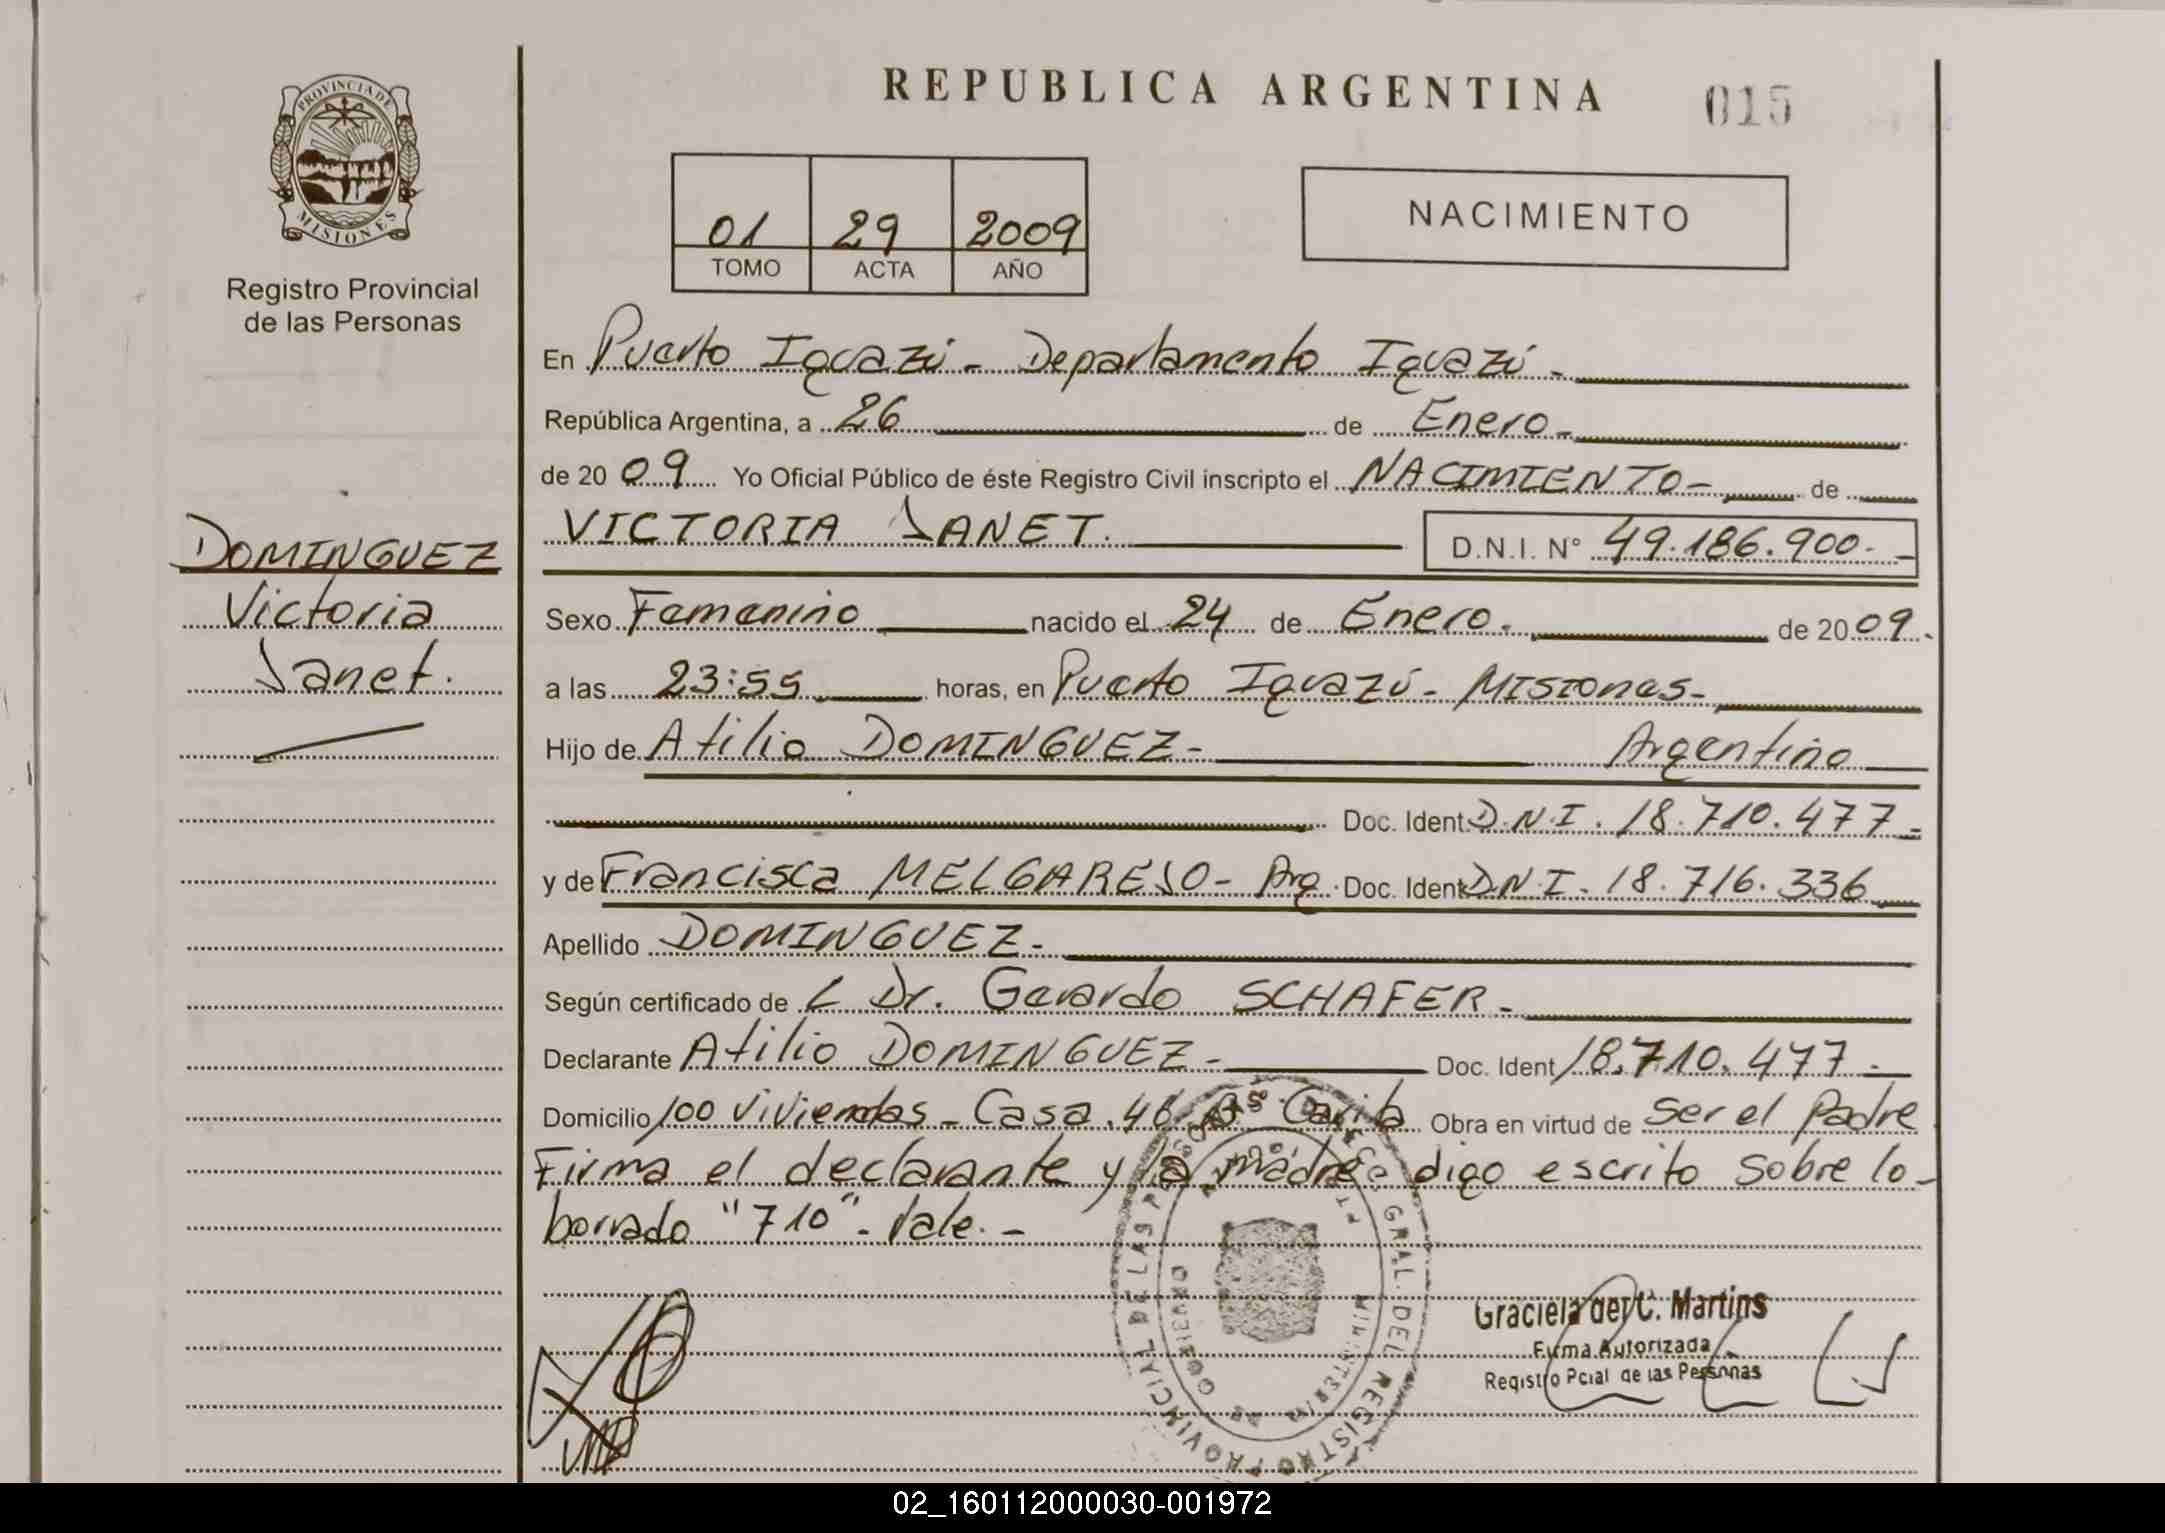 REPUBLICA ARGENTINA
015
PROVINCIA DE
MISIONES
Registro Provincial
de las Personas
01 29 2009
TOMO ACTA AÑO
NACIMIENTO
En Puerto Iguazú - Departamento Iguazú -
República Argentina, a 26 de Enero -
de 20 09 Yo Oficial Público de éste Registro Civil inscripto el NACIMIENTO - de
VICTORIA JANET. D.N.I. N° 49.186.900.-
DOMINGUEZ
Victoria
Janet.
Sexo Femenino nacido el 24 de Enero. de 20 09.
a las 23:55 horas, en Puerto Iguazú - Misiones -
Hijo de Atilio DOMINGUEZ - Argentino
Doc. Ident D.N.I. 18.710.477 -
y de Francisca MELGAREJO - Arg. Doc. Ident D.N.I. 18.716.336
Apellido DOMINGUEZ -
Según certificado de Dr. Gerardo SCHAFER -
Declarante Atilio DOMINGUEZ - Doc. Ident 18.710.477 -
Domicilio 100 viviendas - Casa. 46 Obra en virtud de Ser el Padre
Firma el declarante y la madre digo escrito sobre lo -
borrado "710" - Vale. -
Graciela del C. Martins
Firma Autorizada
Registro Pcial de las Personas
GRAL. DEL REGISTRO PROVINCIAL DE LAS PERSONAS
GOBIERNO
MINISTERIO DE
02_160112000030-001972